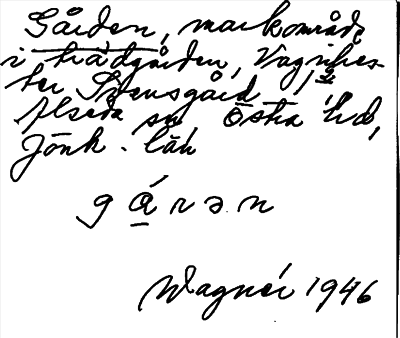 Gården, markområde
i trädgården, Vagnhes-
ter Stensgård,
Alseda sn Östra hd,
Jönk. län
gárən
Wagnér 1946